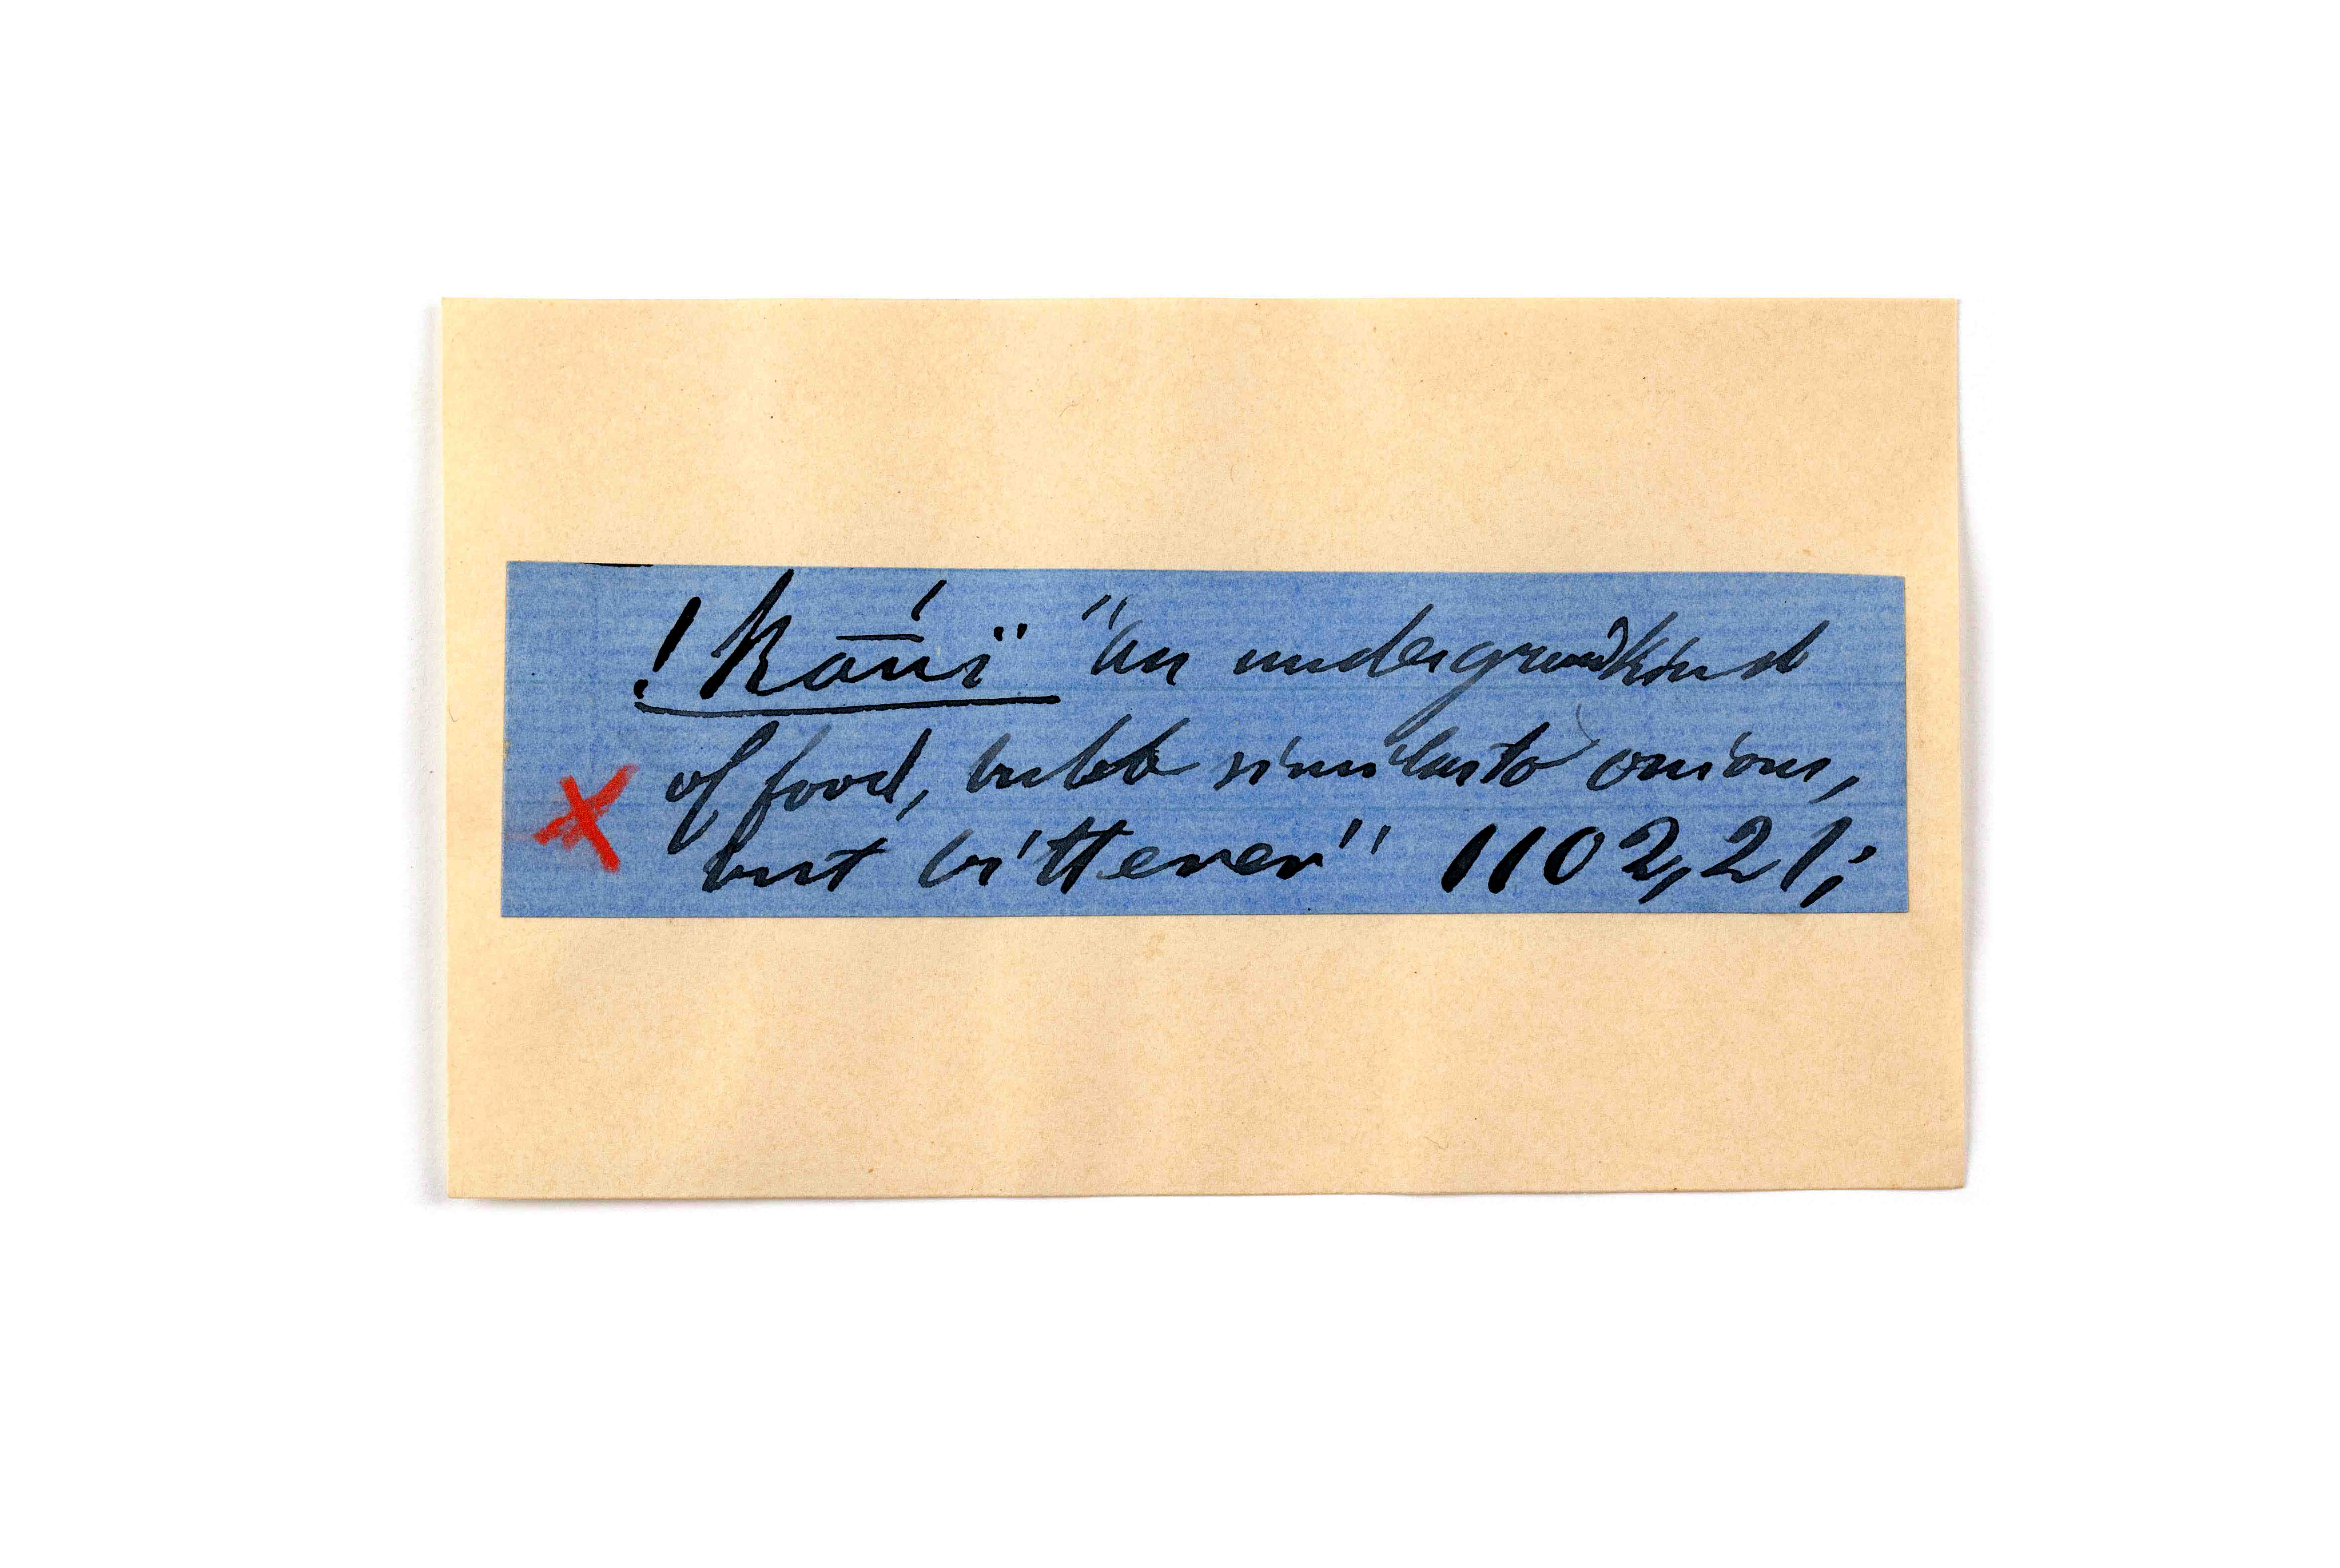 !kā́uï "an undergroundkind
of food, bulb similar to onions,
but bitterer" 1102,21;
X